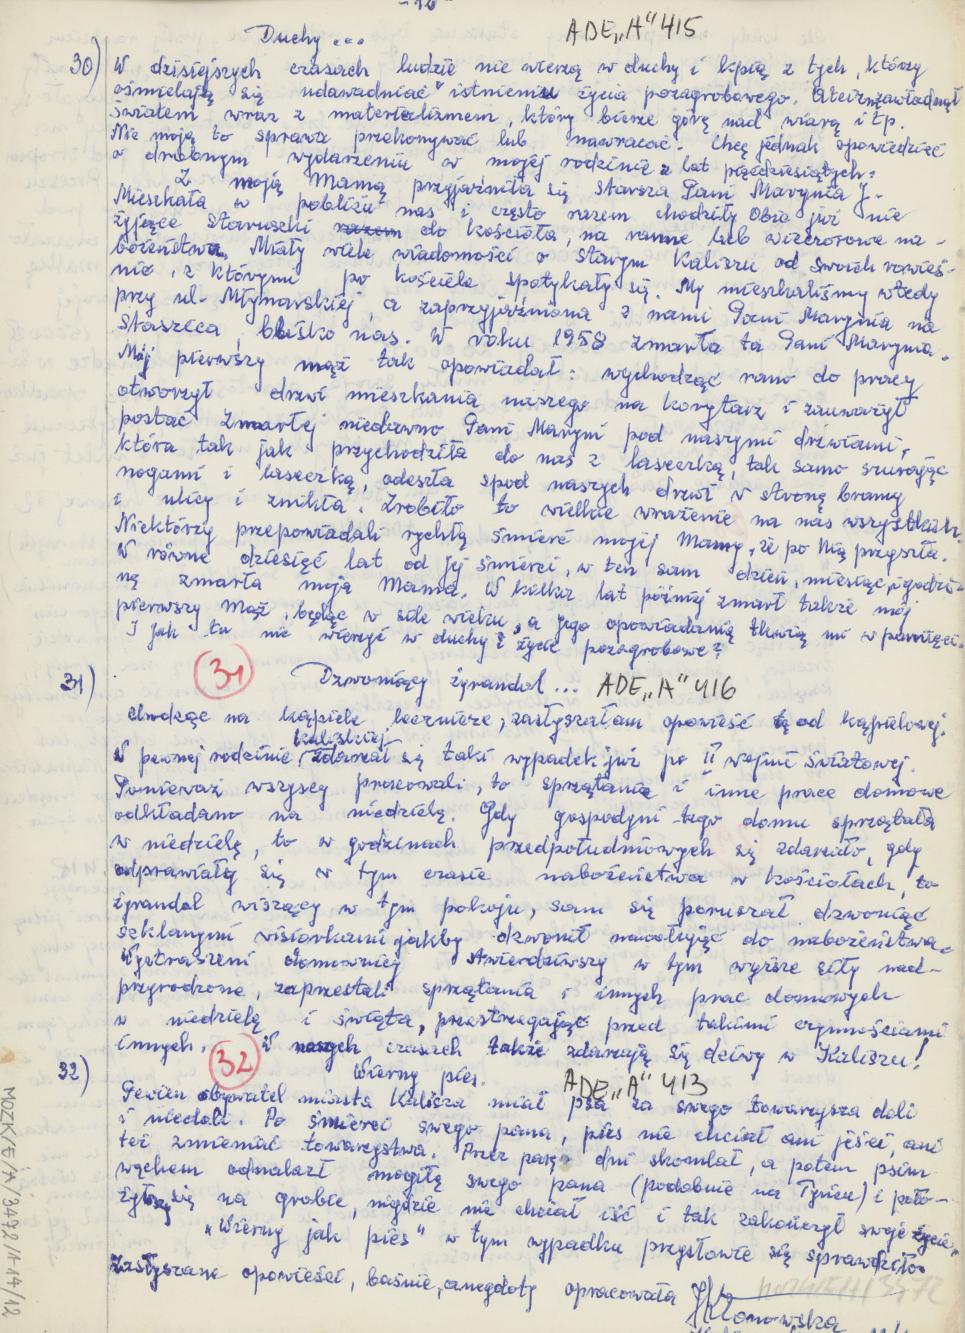 - 12 -
Duchy...
ADE „A" 415
30) W dzisiejszych czasach ludzie nie wierzą w duchy i kpią z tych, którzy
ośmielają się udawadniać istnieniu życia pozagrobowego. Ateizm zawładnął
światem wraz z materializmem, który bierze górę nad wiarą itp.
Nie moją to sprawą przekonywać lub nawracać. Chcę jednak opowiedzieć
o drobnym wydarzeniu w mojej rodzinie z lat pięćdziesiątych:
Z moją Mamą przyjaźniła się starsza Pani Marynia J.
Mieszkała w pobliżu nas i często razem chodziły Obie już nie
żyjące staruszki razem do kościoła, na ranne lub wieczorowe na-
bożeństwa. Miały wiele wiadomości o starym Kaliszu od swoich rówieś-
nic, z którymi po kościele spotykały się. My mieszkaliśmy wtedy
przy ul. Młynarskiej, a zaprzyjaźniona z nami Pani Marynia na
Staszica blisko nas. W roku 1958 zmarła ta Pani Marynia.
Mój pierwszy mąż tak opowiadał: wychodząc rano do pracy
otworzył drzwi mieszkania naszego na korytarz i zauważył
postać zmarłej niedawno Pani Maryni pod naszymi drzwiami,
która tak jak przychodziła do nas z laseczką, tak samo szurając
nogami i laseczką, odeszła spod naszych drzwi w stronę bramy
i ulicy i znikła. Zrobiło to wielkie wrażenie na nas wszystkich.
Niektórzy przepowiadali rychłą śmierć mojej Mamy, że po Nią przyszła.
W równe dziesięć lat od jej śmierci, w ten sam dzień, miesiąc i godzi-
nę zmarła moja Mama. W kilka lat później zmarł także mój
pierwszy Mąż, będąc w sile wieku, a jego opowiadania tkwią mi w pamięci.
I jak tu nie wierzyć w duchy i życie pozagrobowe?
31
31) Dzwoniący żyrandol... ADE „A" 416
Chodząc na kąpiele lecznicze, zasłyszałam opowieść tę od kąpielowej.
kaliskiej
W pewnej rodzinie zdarzał się taki wypadek już po II wojnie światowej.
Ponieważ wszyscy pracowali, to sprzątanie i inne prace domowe
odkładano na niedzielę. Gdy gospodyni tego domu sprzątała
w niedzielę, to w godzinach przedpołudniowych się zdarzało, gdy
odprawiały się w tym czasie nabożeństwa w kościołach, to
żyrandol wiszący w tym pokoju, sam się poruszał dzwoniąc
szklanymi wisiorkami jakby dzwonił nawołując do nabożeństwa.
Wystraszeni domownicy stwierdziwszy w tym wyższe siły nad-
przyrodzone, zaprzestali sprzątania i innych prac domowych
w niedzielę i święta, przestrzegając przed takimi czynnościami
innych. W naszych czasach także zdarzają się dziwy w Kaliszu!
32
32) Wierny pies. ADE „A" 413
Pewien obywatel miasta Kalisza miał psa za swego towarzysza doli
i niedoli. Po śmierci swego pana, pies nie chciał ani jeść, ani
też zmieniać towarzystwa. Przez parę dni skomlał, a potem psim
węchem odnalazł mogiłę swego pana (podobnie na Tyńcu) i poło-
żył się na grobie, nigdzie nie chciał iść i tak zakończył swoje życie.
„Wierny jak pies" w tym wypadku przysłowie się sprawdziło.
Zasłyszane opowieści, baśnie, anegdoty opracowała
MOZK/E/A/3472/1-14/12